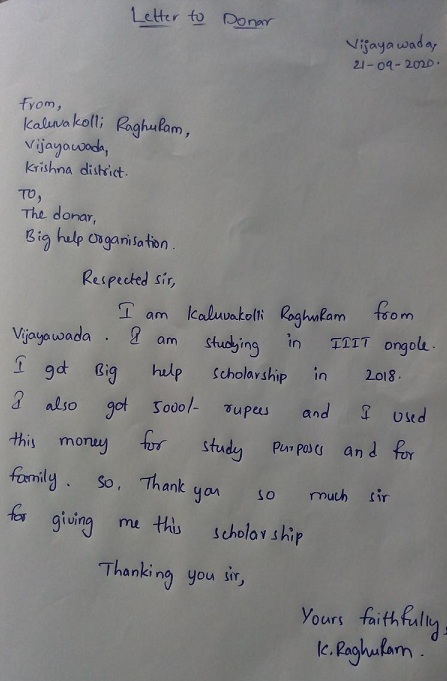 Letter to Donar
Vijayawada,
21-09-2020.
From,
Kaluvakolli Raghuram,
Vijayawada,
Krishna district.
TO,
The donar,
Big help Organisation.
Respected sir,
I am Kaluvakolli Raghuram from
Vijayawada. I am studying in IIIT ongole.
I got Big help scholarship in 2018.
I also got 5000/- rupees and I used
this money for study purposes and for
family. So, Thank you so much sir
for giving me this scholarship
Thanking you sir,
Yours faithfully,
K. Raghuram.